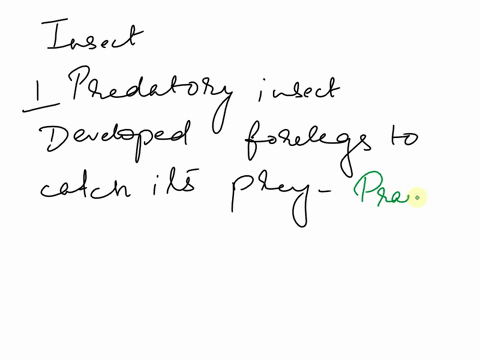 Insect
1 Predatory insect
Developed forelegs to
catch its prey - Pra